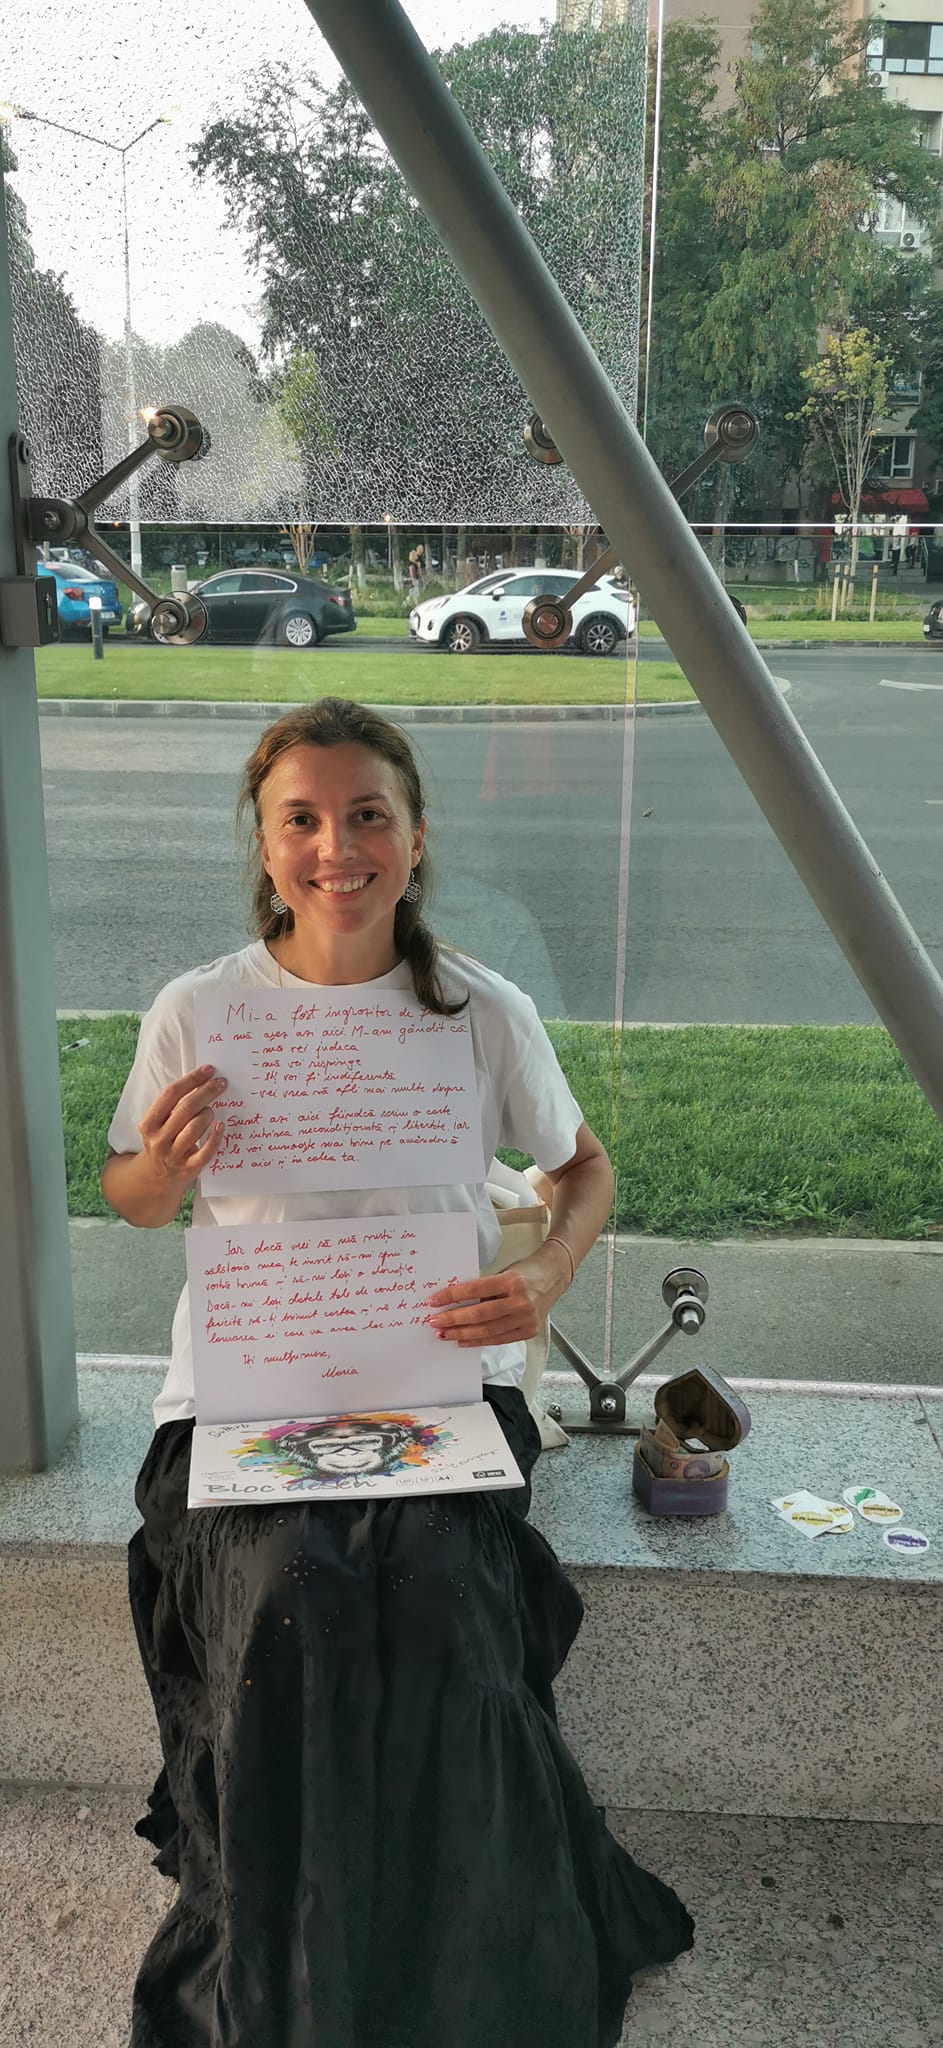 Mi-a fost îngrozitor de
să mă așez azi aici. M-am gândit că
- mă vei judeca
- mă vei respinge
- îți voi fi indiferentă
- vei vrea să afli mai multe despre
mine.
Sunt azi aici fiindcă scriu o carte
iubirea necondiționată și libertate. Iar
le voi cunoaște mai bine pe amândouă
fiind aici și în calea ta.
Iar dacă vrei să mă susții în
călătoria mea, te invit să-mi spui o
vorbă bună și să-mi lași o donație.
Dacă-mi lași datele tale de contact, voi fi
fericită să-ți trimit cartea și să te
lansarea ei care va avea loc în 17
Îți mulțumesc,
Maria
Bloc desen
A4